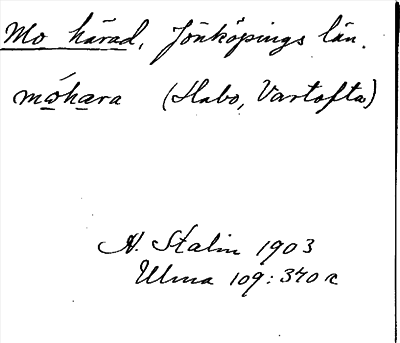 Mo härad, Jönköpings län.
móhara (Habo, Vartofta)
N. Stalin 1903
Ulma 109:340 a